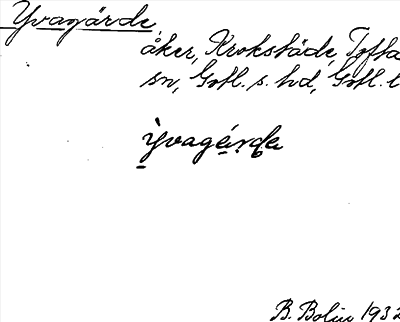 Yvagärde,
åker, Krokstäde, Tofta
sn, Gotl. s. hd, Gotl. l
Yvagárde
B. Bolin 1932